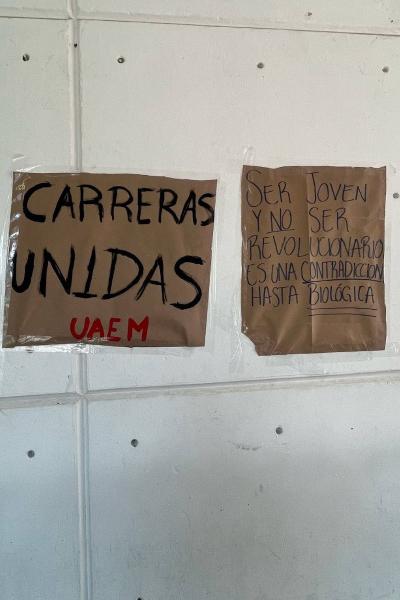 CARRERAS
UNIDAS
UAEM
SER JOVEN
Y NO SER
REVOLUCIONARIO
ES UNA CONTRADICCION
HASTA BIOLÓGICA